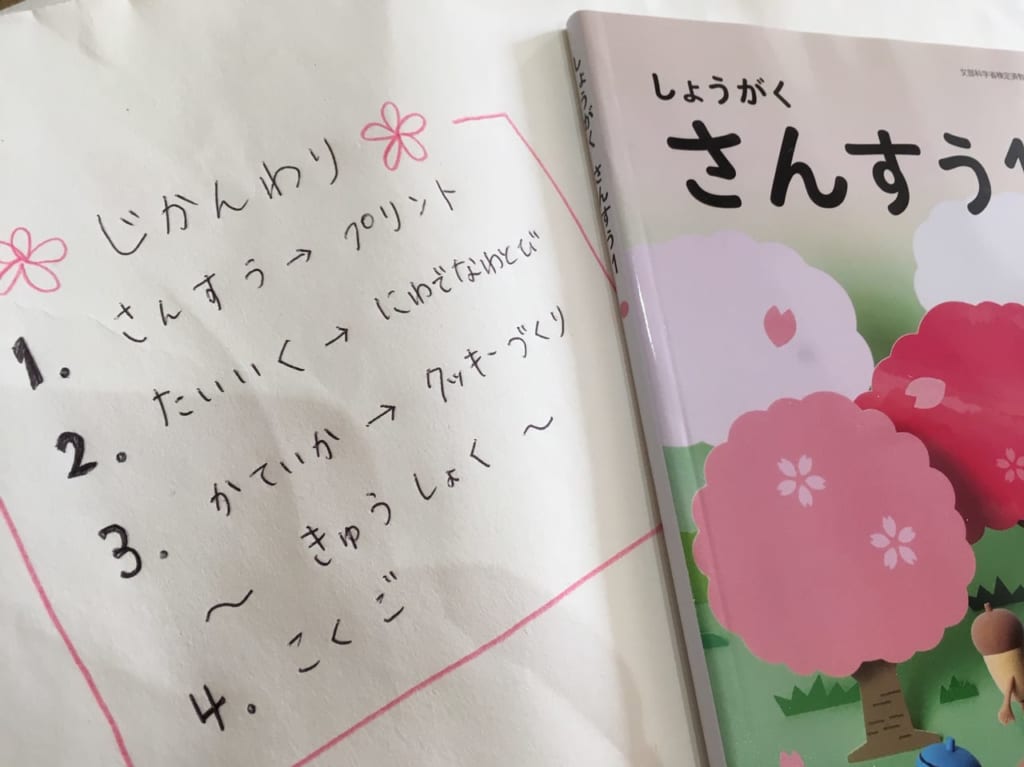 じかんわり
1. さんすう → プリント
2. たいいく → にわでなわとび
3. かていか → クッキーづくり
〜 きゅうしょく 〜
4. こくご
しょうがく さんすう 1
文部科学省検定済教
しょうがく
さんすう